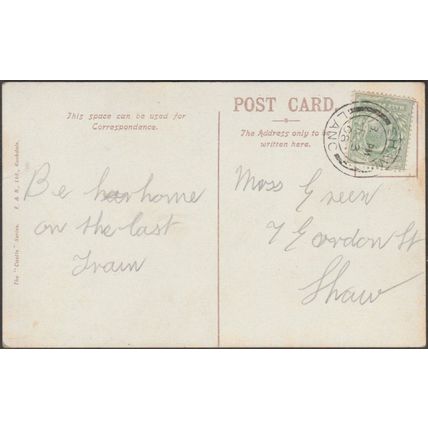 This space can be used for
Correspondence.
POST CARD.
The Address only to be
written here.
Be home
on the last
Train
Miss Green
7 Gordon St
Shaw
The "Castle" Series. T. & B., Ltd., Rochdale.
SHAW
LANC
3 PM
08